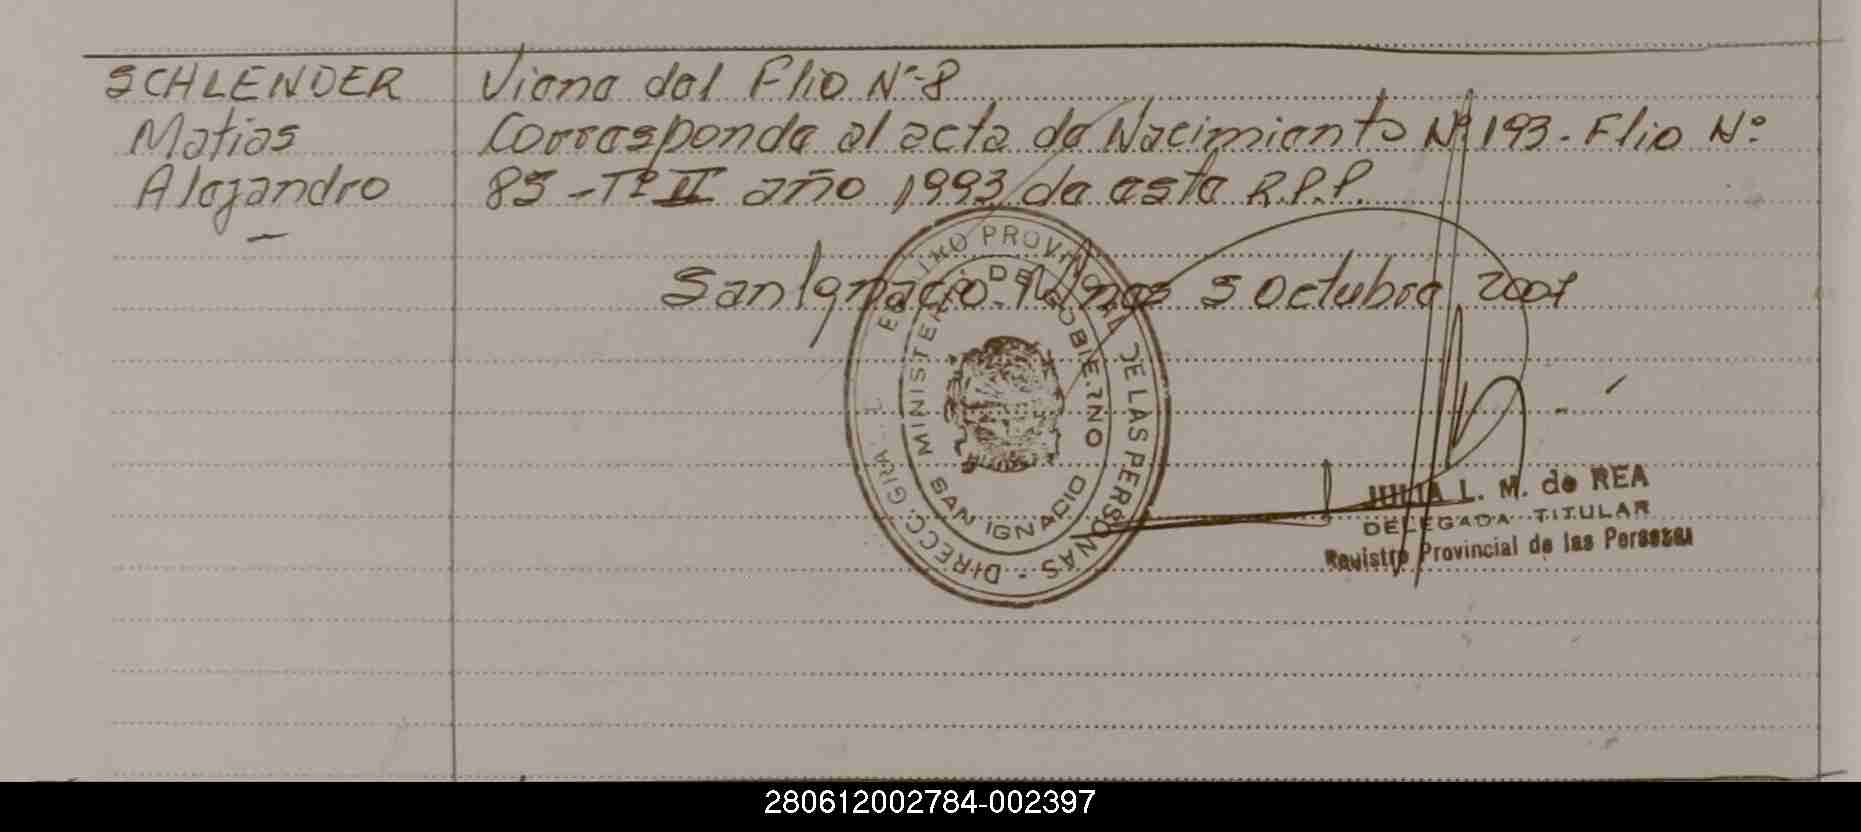 SCHLENDER
Matias
Alejandro
Viene del Flio Nº 8
Corresponde al acta de Nacimiento Nº 193 - Flio Nº
85 - Tº II año 1993 de esta R.P.P.
San Ignacio Mnes 5 Octubre 2001
REGISTRO PROVINCIAL DE LAS PERSONAS - DIRECC. GRAL.
MINISTERIO DE GOBIERNO
SAN IGNACIO
JULIA L. M. de REA
DELEGADA TITULAR
Registro Provincial de las Personas
280612002784-002397